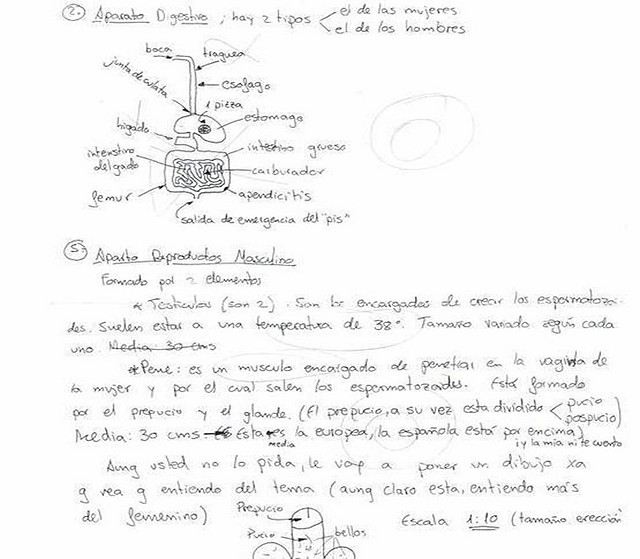 2. Aparato Digestivo ; hay 2 tipos
el de las mujeres
el de los hombres
boca
traquea
junta de culata
esofago
1 pizza
estomago
higado
intestino grueso
intenstino
delgado
carburador
femur
apendicitis
salida de emergencia del "pis"
5. Aparto Reproductos Masculino
Formado por 2 elementos
* Testiculos (son 2). Son los encargados de crear los espermatozoi-
des. Suelen estar a una temperatura de 38º. Tamaño variado según cada
uno. Media: 30 cms
* Pene: es un musculo encargado de penetrar en la vagina de
la mujer y por el cual salen los espermatozoides. Está formado
por el prepucio y el glande. (El prepucio, a su vez, esta dividido
pucio
pospucio)
Media: 30 cms (Esta es la europea, la española está por encima)
media
¡y la mia ni te cuento
Aunq usted no lo pida, le voy a poner un dibujo xa
q vea q entiendo del tema (aunq claro esta, entiendo más
del femenino)
Prepucio
Pucio
bellos
Escala 1:10 (tamaño erección